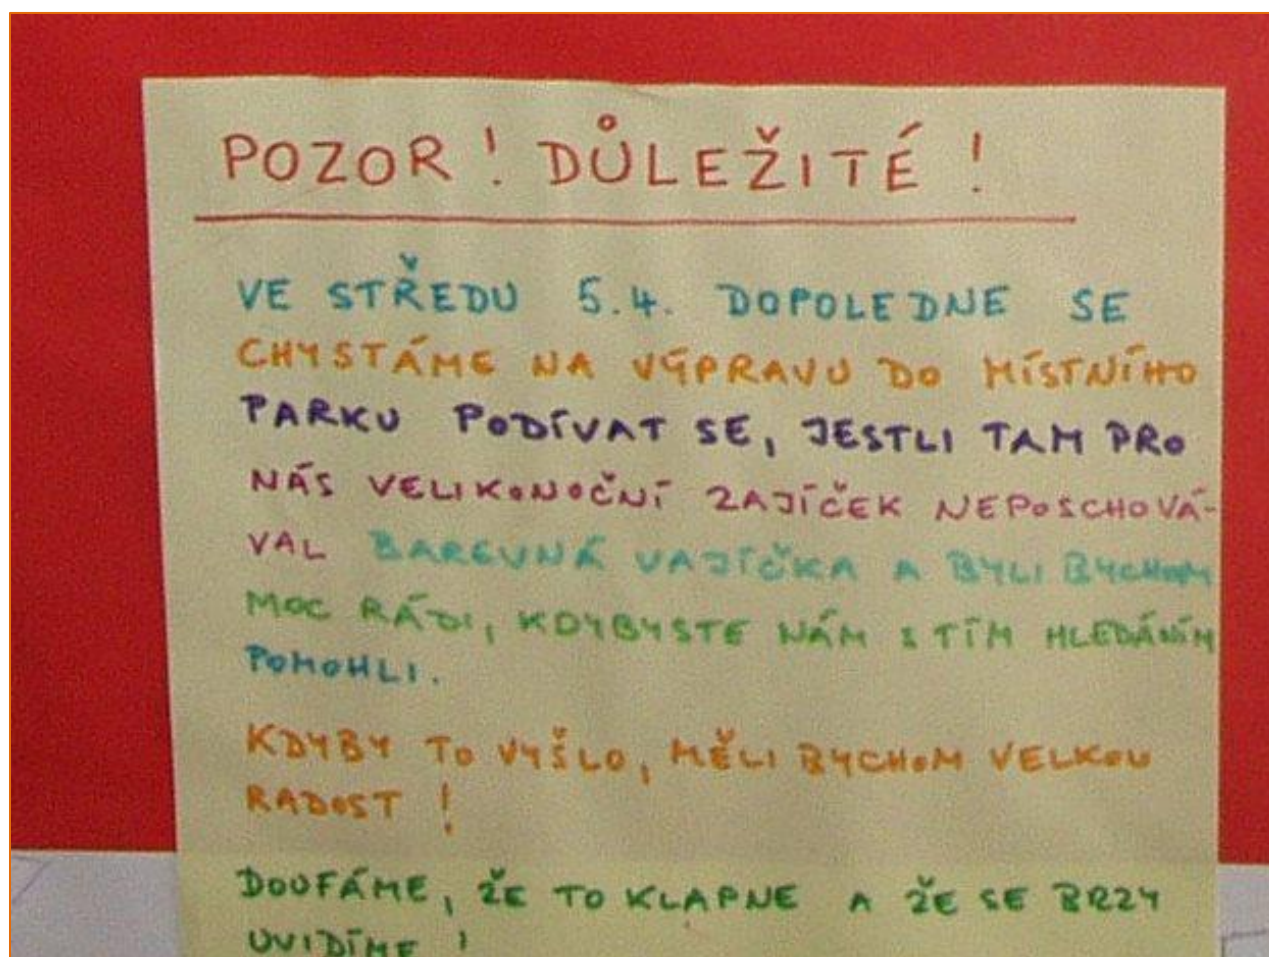 POZOR! DŮLEŽITÉ!
VE STŘEDU 5.4. DOPOLEDNE SE
CHYSTÁME NA VÝPRAVU DO MÍSTNÍHO
PARKU PODÍVAT SE, JESTLI TAM PRO
NÁS VELIKONOČNÍ ZAJÍČEK NEPOSCHOVÁ-
VAL BAREVNÁ VAJÍČKA A BYLI BYCHOM
MOC RÁDI, KDYBYSTE NÁM S TÍM HLEDÁNÍM
POMOHLI.
KDYBY TO VYŠLO, MĚLI BYCHOM VELKOU
RADOST!
DOUFÁME, ŽE TO KLAPNE A ŽE SE BRZY
UVIDÍME!